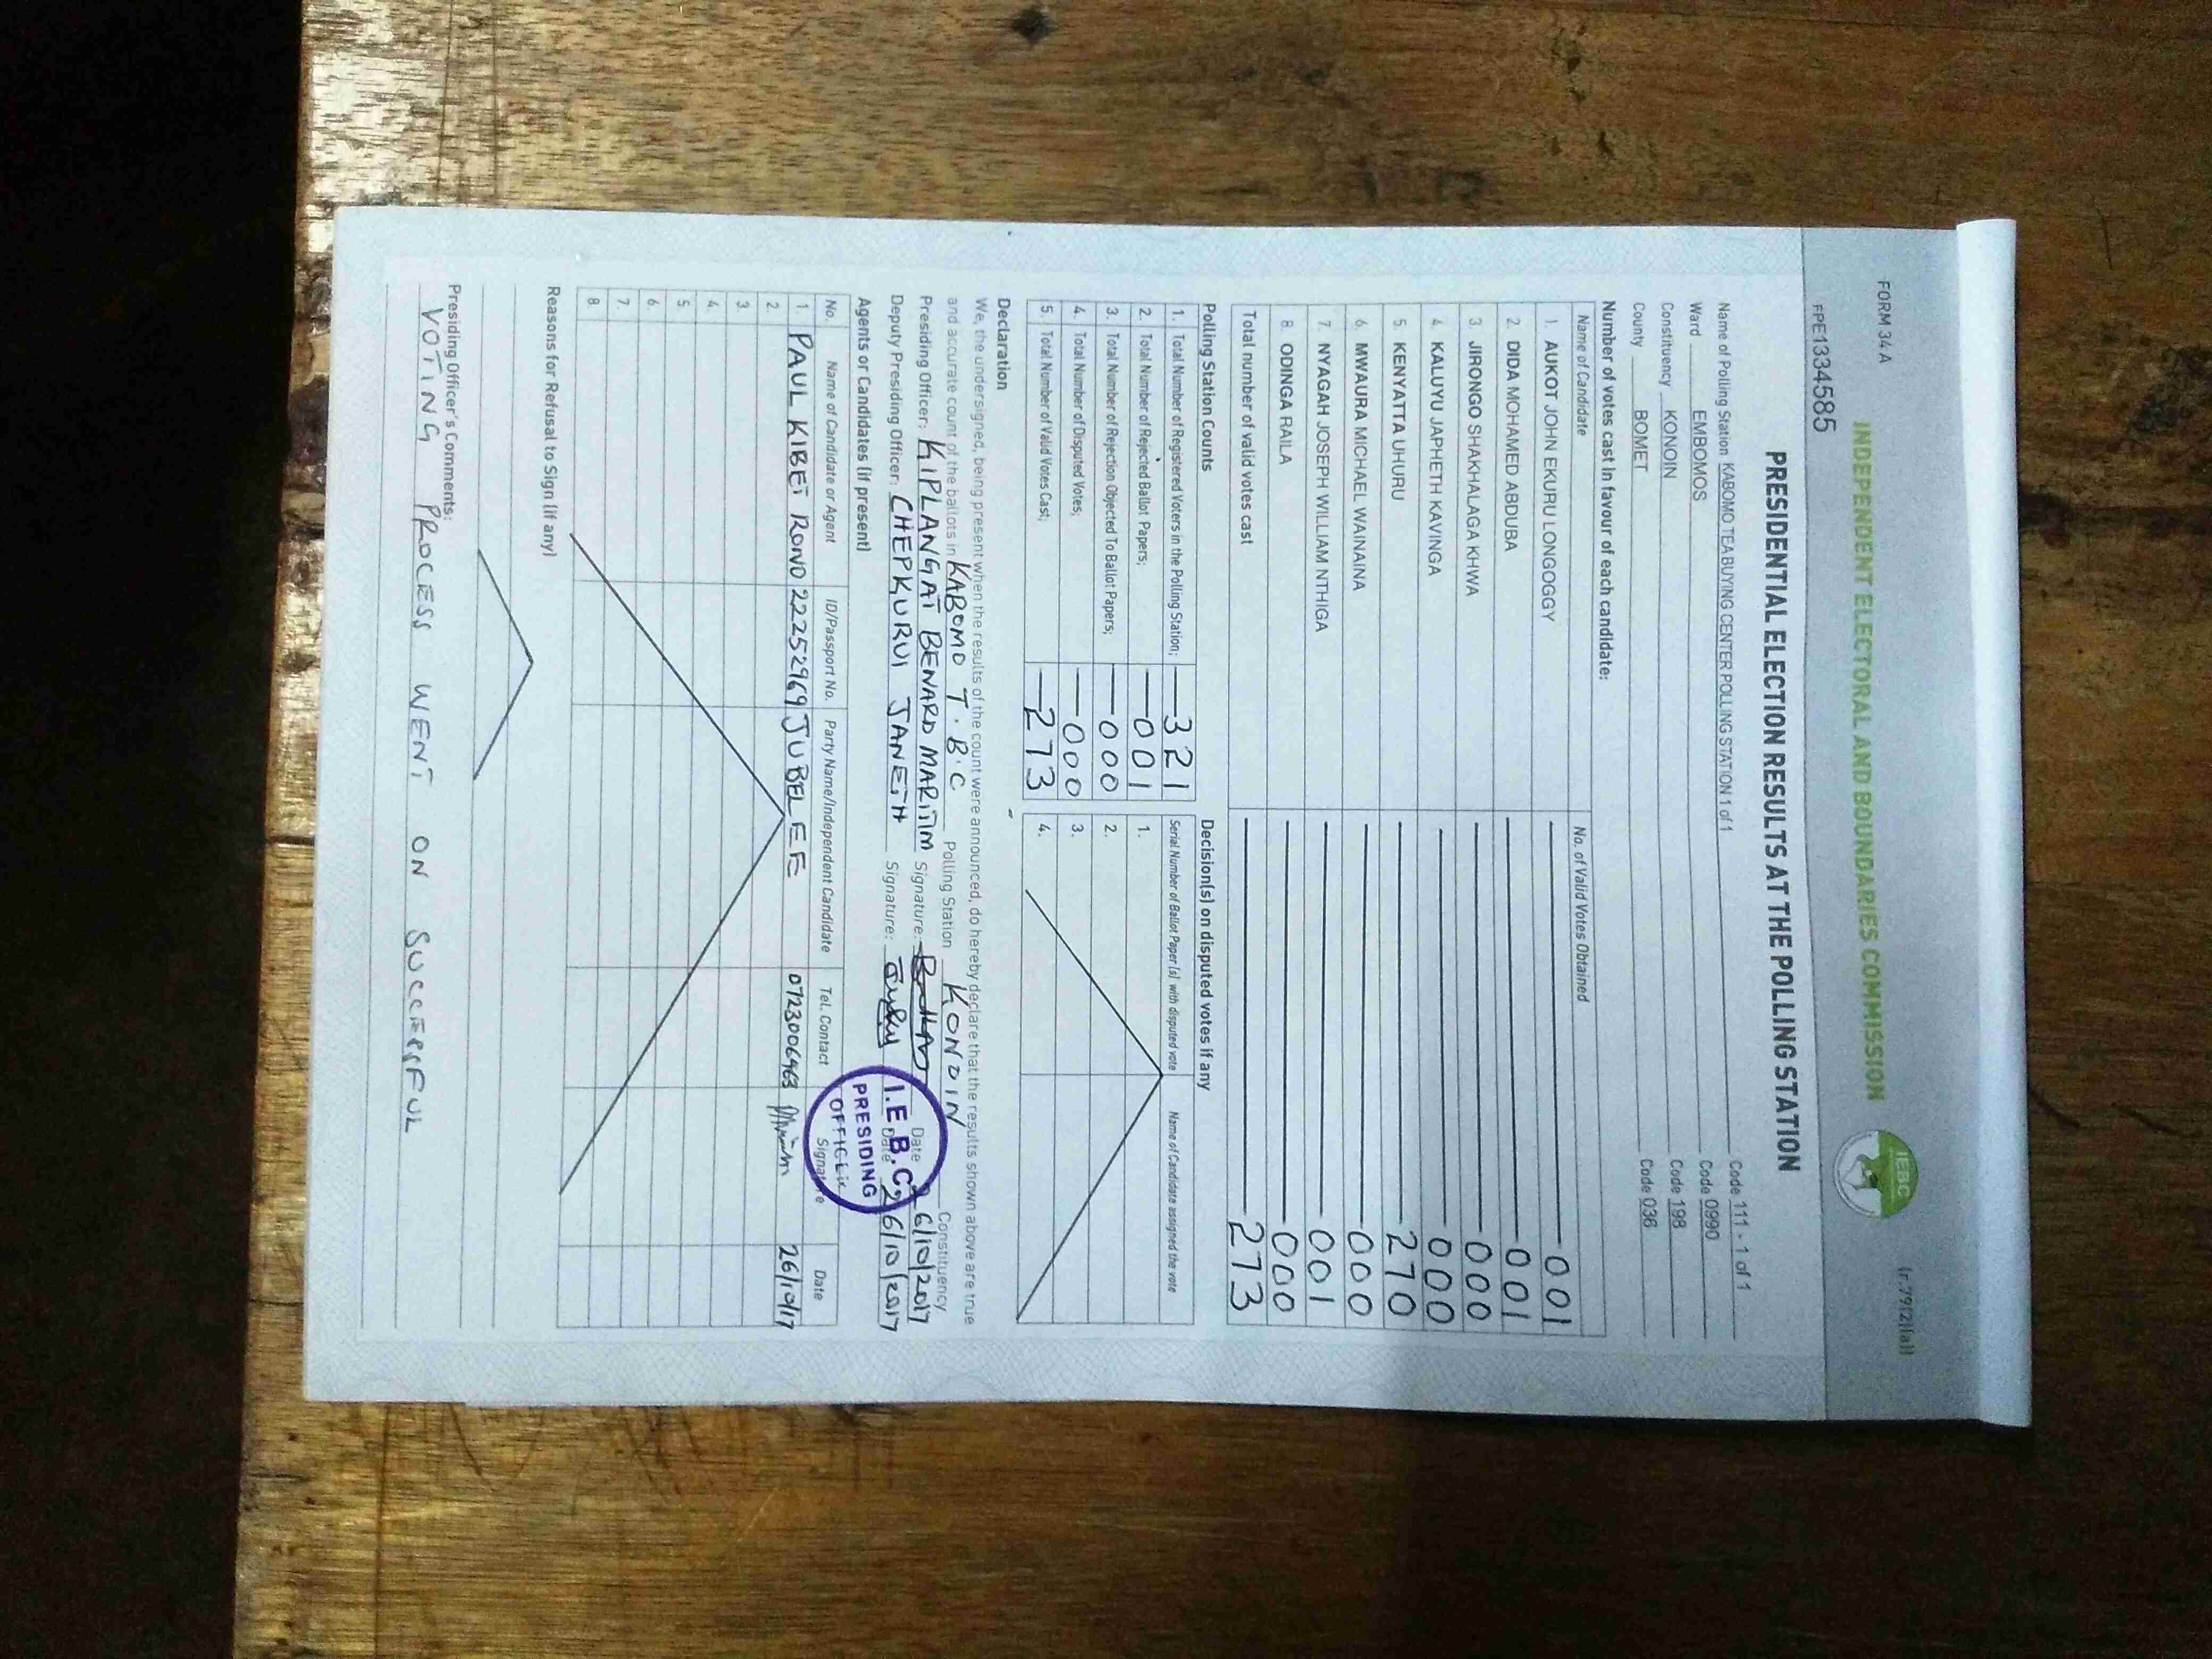 FORM 34 A (r.79(2)(a))
INDEPENDENT ELECTORAL AND BOUNDARIES COMMISSION
IEBC
FPE1334585
PRESIDENTIAL ELECTION RESULTS AT THE POLLING STATION
Name of Polling Station KABOMO TEA BUYING CENTER POLLING STATION 1 of 1 Code 111 - 1 of 1
Ward EMBOMOS Code 0990
Constituency KONOIN Code 198
County BOMET Code 036
Number of votes cast in favour of each candidate:
Name of Candidate No. of Valid Votes Obtained
1. AUKOT JOHN EKURU LONGOGGY 001
2. DIDA MOHAMED ABDUBA 001
3. JIRONGO SHAKHALAGA KHWA 000
4. KALUYU JAPHETH KAVINGA 000
5. KENYATTA UHURU 270
6. MWAURA MICHAEL WAINAINA 000
7. NYAGAH JOSEPH WILLIAM NTHIGA 001
8. ODINGA RAILA 000
Total number of valid votes cast 273
Polling Station Counts Decision(s) on disputed votes if any
Serial Number of Ballot Paper(s) with disputed vote Name of Candidate assigned the vote
1. Total Number of Registered Voters in the Polling Station; 321
2. Total Number of Rejected Ballot Papers; 001 1.
3. Total Number of Rejection Objected To Ballot Papers; 000 2.
4. Total Number of Disputed Votes; 000 3.
5. Total Number of Valid Votes Cast; 273 4.
Declaration
We, the undersigned, being present when the results of the count were announced, do hereby declare that the results shown above are true
and accurate count of the ballots in KABOMO T.B.C Polling Station KONOIN Constituency
Presiding Officer: KIPLANGAT BENARD MARITIM Signature: Date 26/10/2017
Deputy Presiding Officer: CHEPKURUI JANETH Signature: Date 26/10/2017
I.E.B.C.
PRESIDING
OFFICER
Agents or Candidates (if present)
No. Name of Candidate or Agent ID/Passport No. Party Name/Independent Candidate Tel. Contact Signature Date
1. PAUL KIBET RONO 22252969 JUBELEE 0723006963 26/10/17
2.
3.
4.
5.
6.
7.
8.
Reasons for Refusal to Sign (if any)
Presiding Officer's Comments:
VOTING PROCESS WENT ON SUCCESSFUL